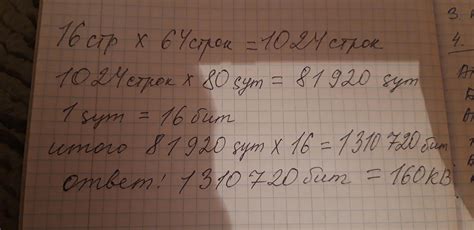 16 стр x 64 строк = 1024 строк
1024 строк x 80 sym = 81920 sym
1 sym = 16 бит
итого 81920 sym x 16 = 1310720 бит
ответ! 1310720 бит = 160 кВ
3.
4.